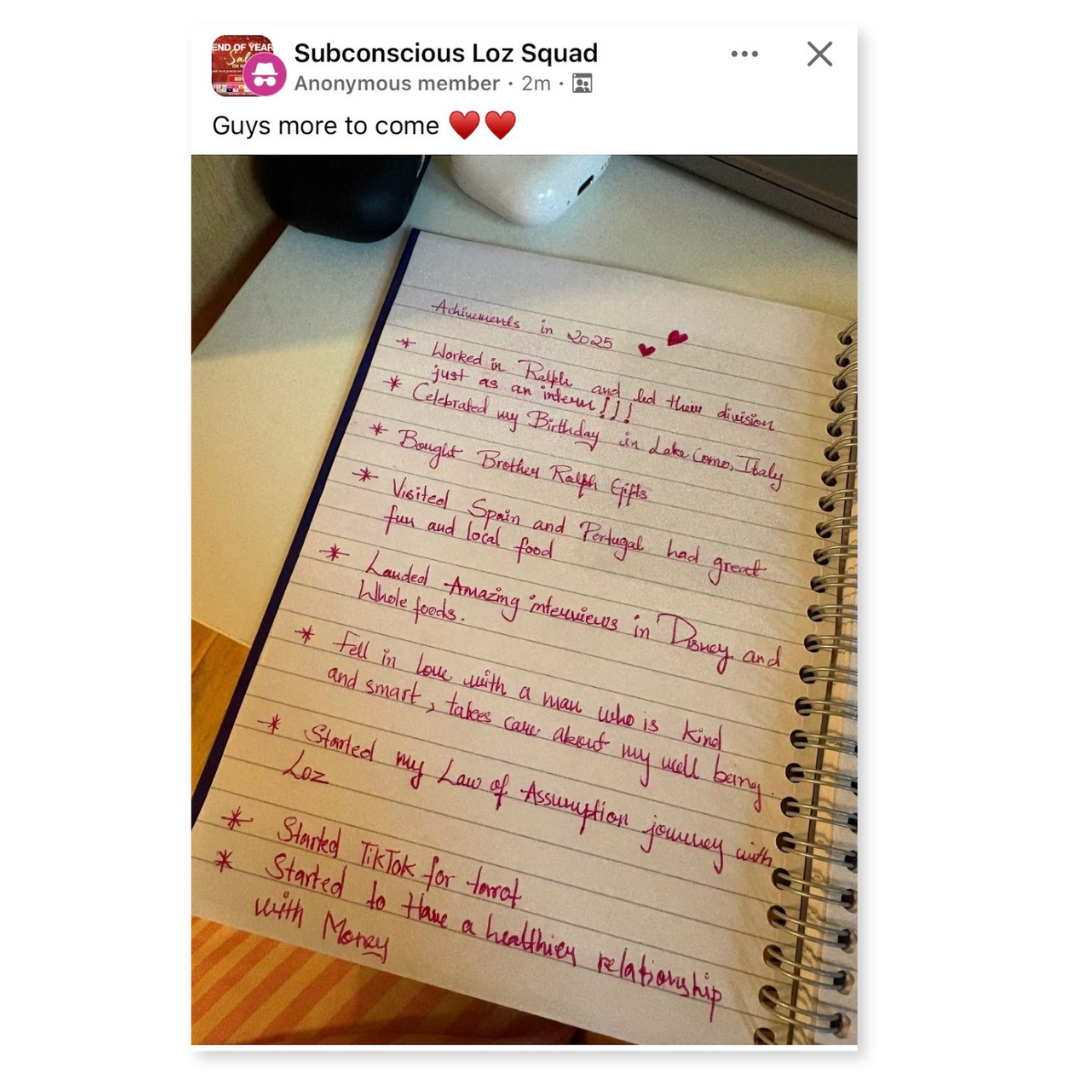 END OF YEAR
Sale
Subconscious Loz Squad
Anonymous member · 2m ·
Guys more to come ♥️♥️
Achivements in 2025
* Worked in Ralph and led their division
just as an intern!!!
* Celebrated my Birthday in Lake Como, Italy
* Bought Brother Ralph Gifts
* Visited Spain and Portugal had great
fun and local food
* Landed Amazing interviews in Disney and
Whole foods.
* Fell in love with a man who is kind
and smart, takes care about my well being.
* Started my Law of Assumption journey with
Loz
* Started TikTok for tarot
* Started to Have a healthier relationship
with Money